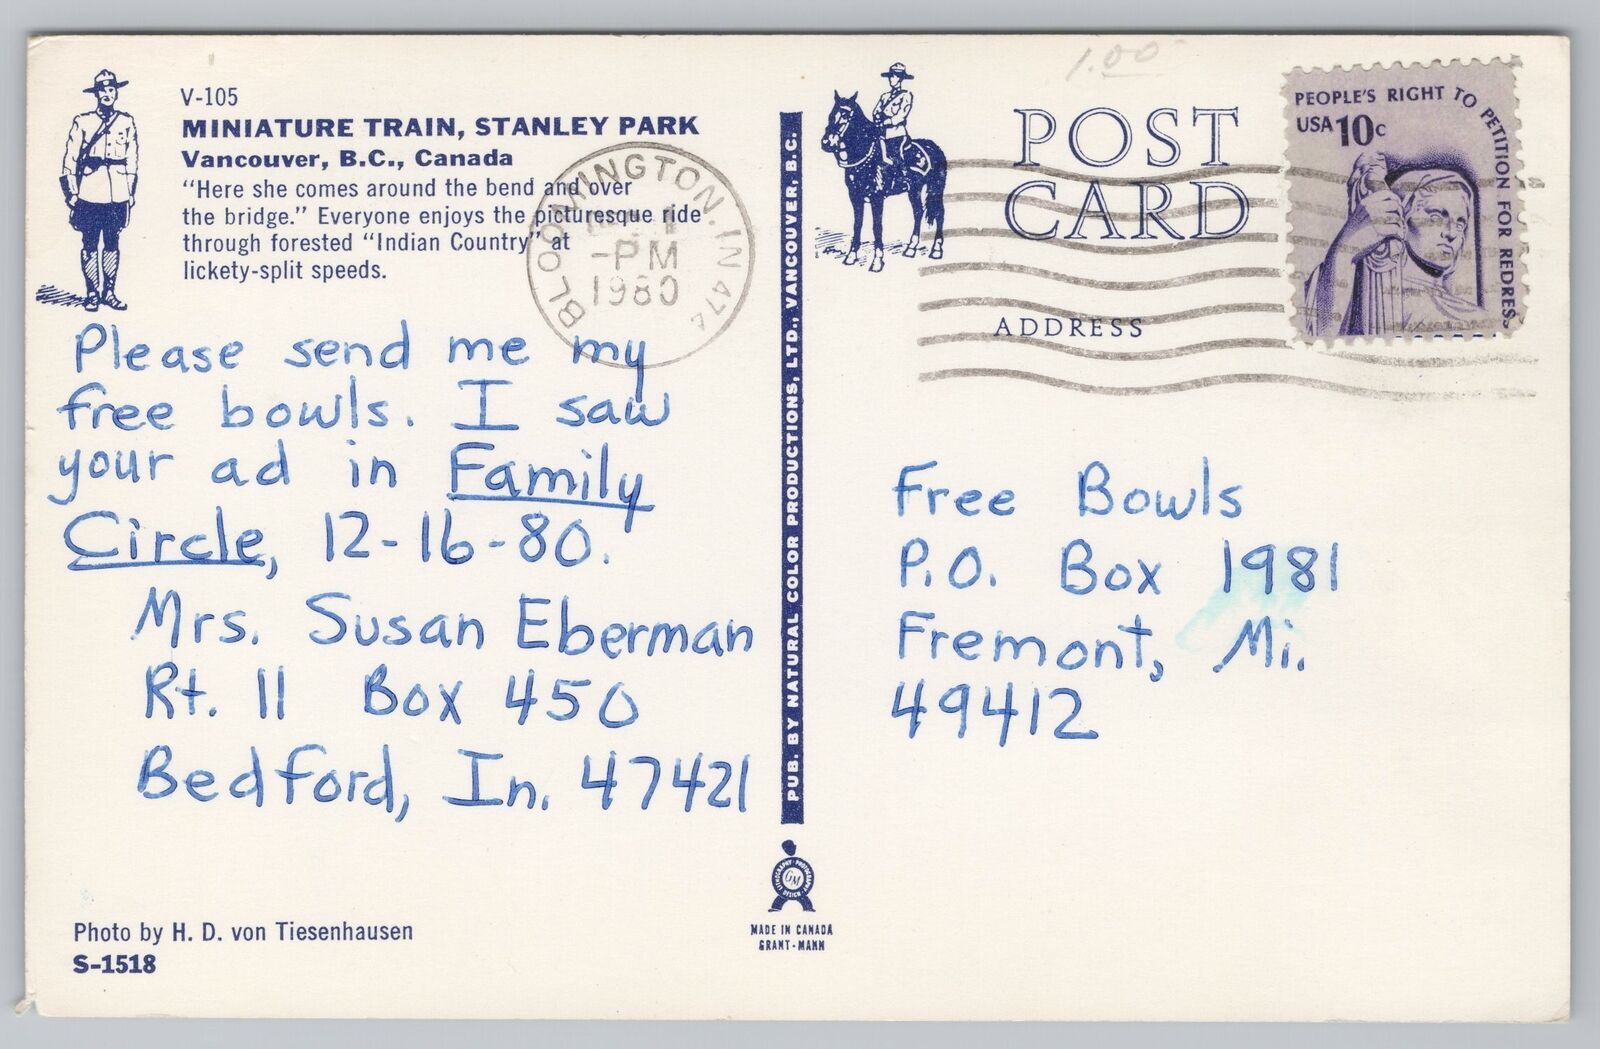 1.00
V-105
MINIATURE TRAIN, STANLEY PARK
Vancouver, B.C., Canada
"Here she comes around the bend and over
the bridge." Everyone enjoys the picturesque ride
through forested "Indian Country" at
lickety-split speeds.
BLOOMINGTON, IN 474
PM
1980
POST
CARD
ADDRESS
PEOPLE'S RIGHT TO PETITION FOR REDRESS
USA 10c
Please send me my
free bowls. I saw
your ad in Family
Circle, 12-16-80.
Mrs. Susan Eberman
Rt. 11 Box 450
Bedford, In. 47421
PUB. BY NATURAL COLOR PRODUCTIONS, LTD., VANCOUVER, B.C.
Free Bowls
P.O. Box 1981
Fremont, Mi.
49412
LITHOGRAPHY · PHOTOGRAPHY
DESIGN
GM
MADE IN CANADA
GRANT-MANN
Photo by H. D. von Tiesenhausen
S-1518